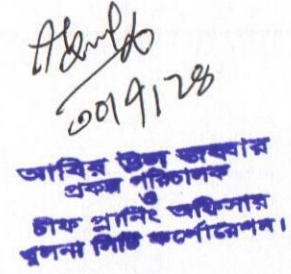 আবির উল জব্বার
প্রকল্প পরিচালক
ও
চীফ প্লানিং অফিসার
খুলনা সিটি কর্পোরেশন।